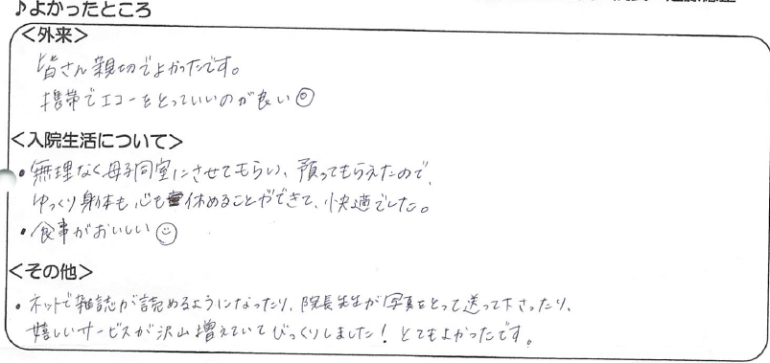 ♪よかったところ
＜外来＞
皆さん親切でよかったです。
携帯でエコーをとっていいのが良い☺
＜入院生活について＞
・無理なく母子同室にさせてもらい、預ってもらえたので、
ゆっくり身体も心も休めることができて、快適でした。
・食事がおいしい☺
＜その他＞
・ネットで雑誌が読めるようになったり、院長先生が写真をとって送って下さったり、
嬉しいサービスが沢山増えていてびっくりしました！とてもよかったです。